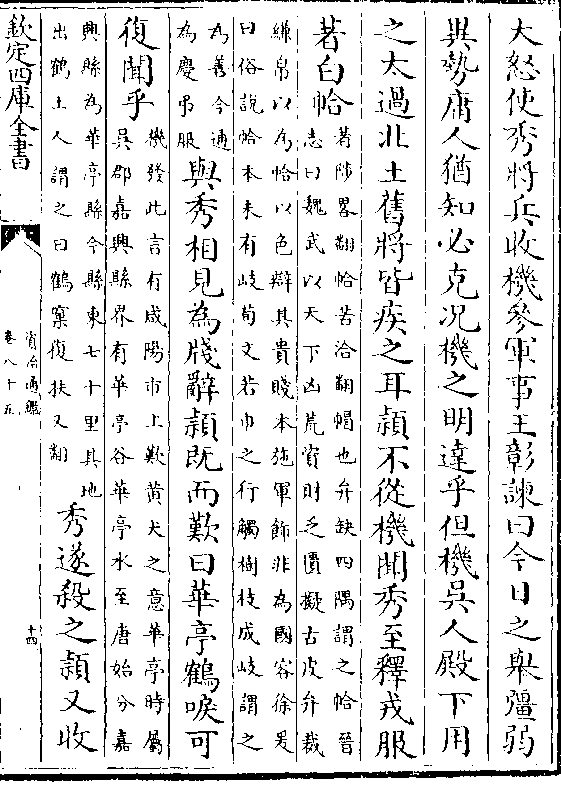 大怒使秀將兵收機參軍事王彰諫曰今日之舉彊弱
異勢庸人猶知必克况機之明達乎但機吳人殿下用
之太過北土舊將皆疾之耳頴不從機聞秀至釋戎服
著白帢
著陟畧翻帢苦洽翻帽也弁缺四隅謂之帢晉
志曰魏武以天下凶荒資財乏匱擬古皮弁裁
縑帛以為帢以色辯其貴賤本施軍飾非為國容徐爰
曰俗說帢本未有岐荀文若巾之行觸樹枝成岐謂之
為善今通
為慶弔服
與秀相見為牋辭頴既而歎曰華亭鶴唳可
復聞乎
機發此言有咸陽市上歎黄犬之意華亭時屬
吳郡嘉興縣界有華亭谷華亭水至唐始分嘉
興縣為華亭縣今縣東七十里其地
出鶴土人謂之曰鶴窠復扶又翻
秀遂殺之頴又收
欽定四庫全書
資治通鑑
卷八十五
十四